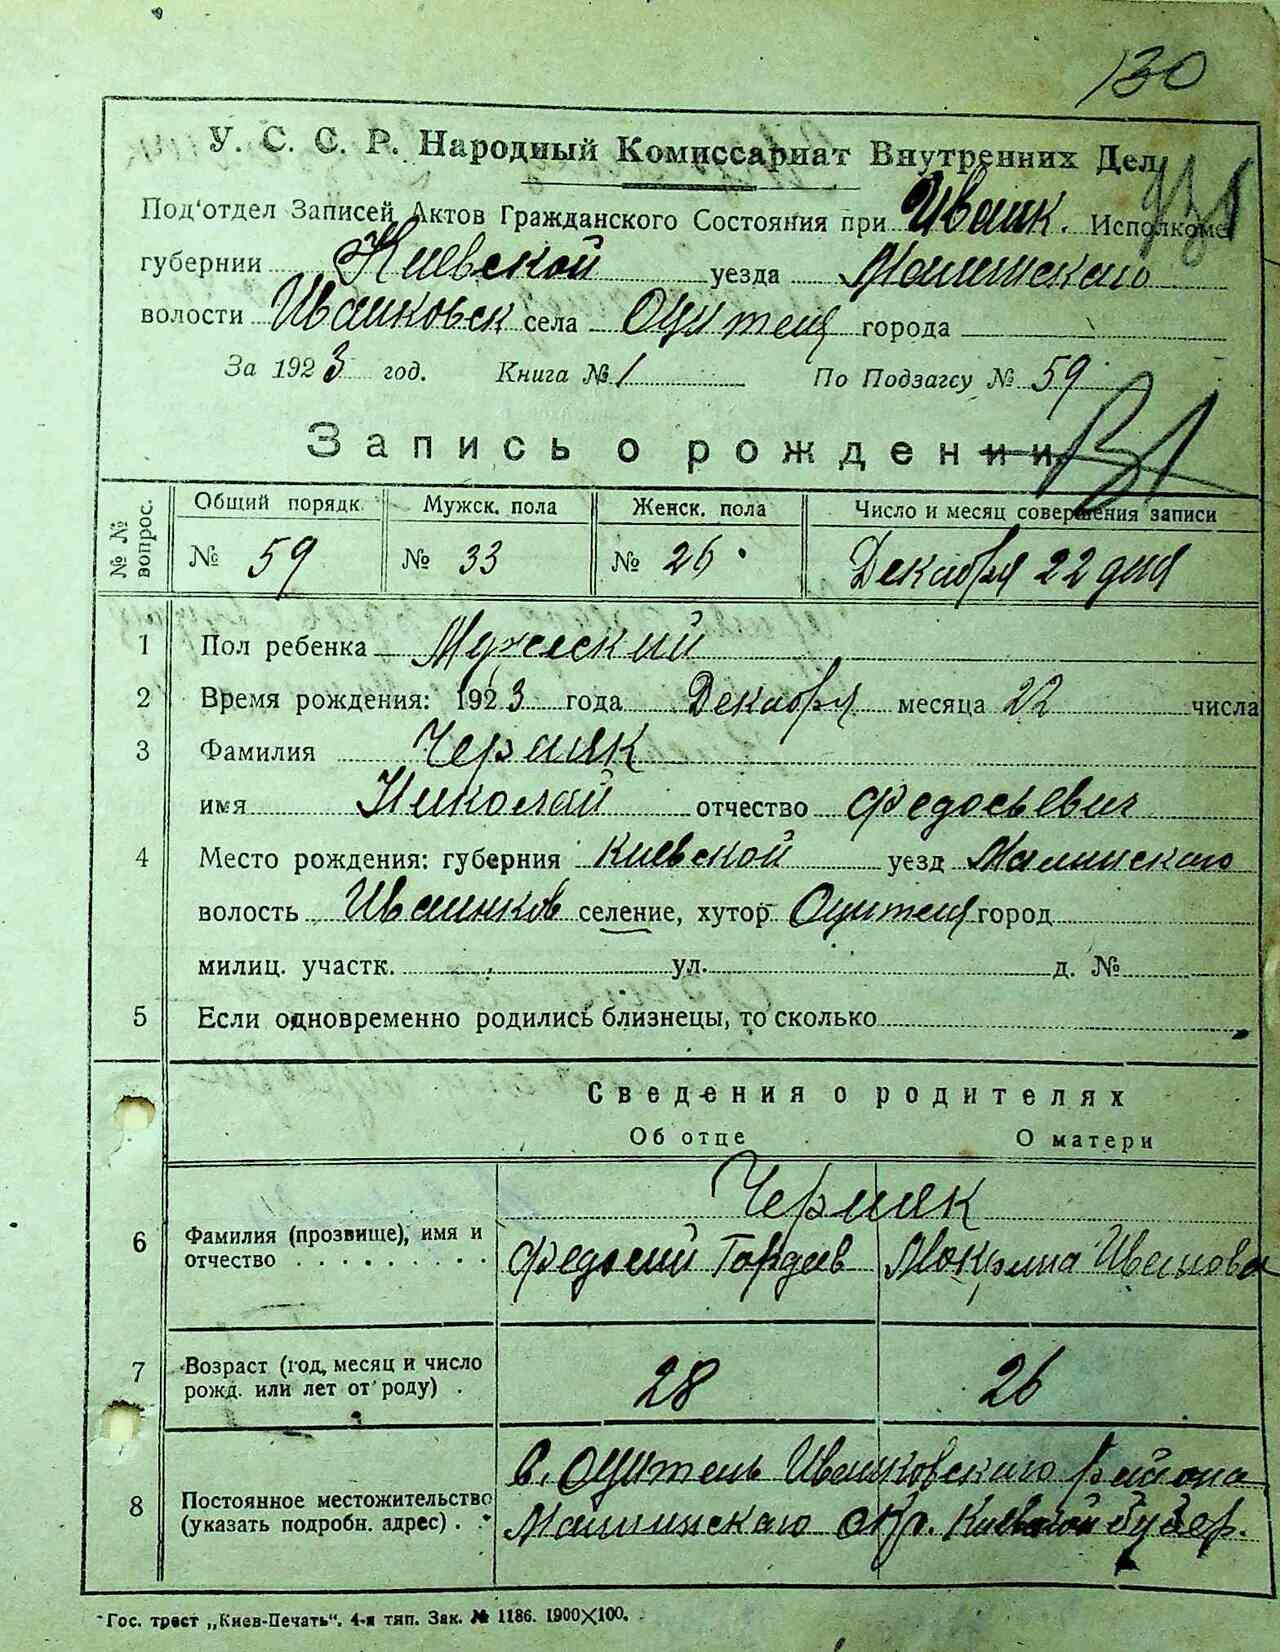 130
У. С. С. Р. Народный Комиссариат Внутренних Дел
Под'отдел Записей Актов Гражданского Состояния при Иванк. Исполкоме
губернии Киевской уезда Малинскаго
волости Иванковск села Оцители города
За 1923 год. Книга № 1 По Подзагсу № 59
Запись о рождении
№№ вопрос. Общий порядк. Мужск. пола Женск. пола Число и месяц совершения записи
№ 59 № 33 № 26 Декабря 22 дня
1 Пол ребенка Мужеский
2 Время рождения: 1923 года Декабря месяца 22 числа
3 Фамилия Черняк
имя Николай отчество Федосьевич
4 Место рождения: губерния Киевской уезд Малинскаго
волость Иванков селение, хутор Оцителя город
милиц. участк. ул. д. №
5 Если одновременно родились близнецы, то сколько
Сведения о родителях
Об отце О матери
Черняк
6 Фамилия (прозвище), имя и
отчество . . . . . . . . . . Федосий Гордеев Мокрина Иванова
7 Возраст (год, месяц и число
рожд. или лет от роду) . 28 26
в. Оцитель Иванковского района
8 Постоянное местожительство
(указать подробн. адрес) . . Малинскаго окр. Киевской губер.
Гос. трест „Киев-Печать“. 4-я тип. Зак. № 1186. 1900×100.